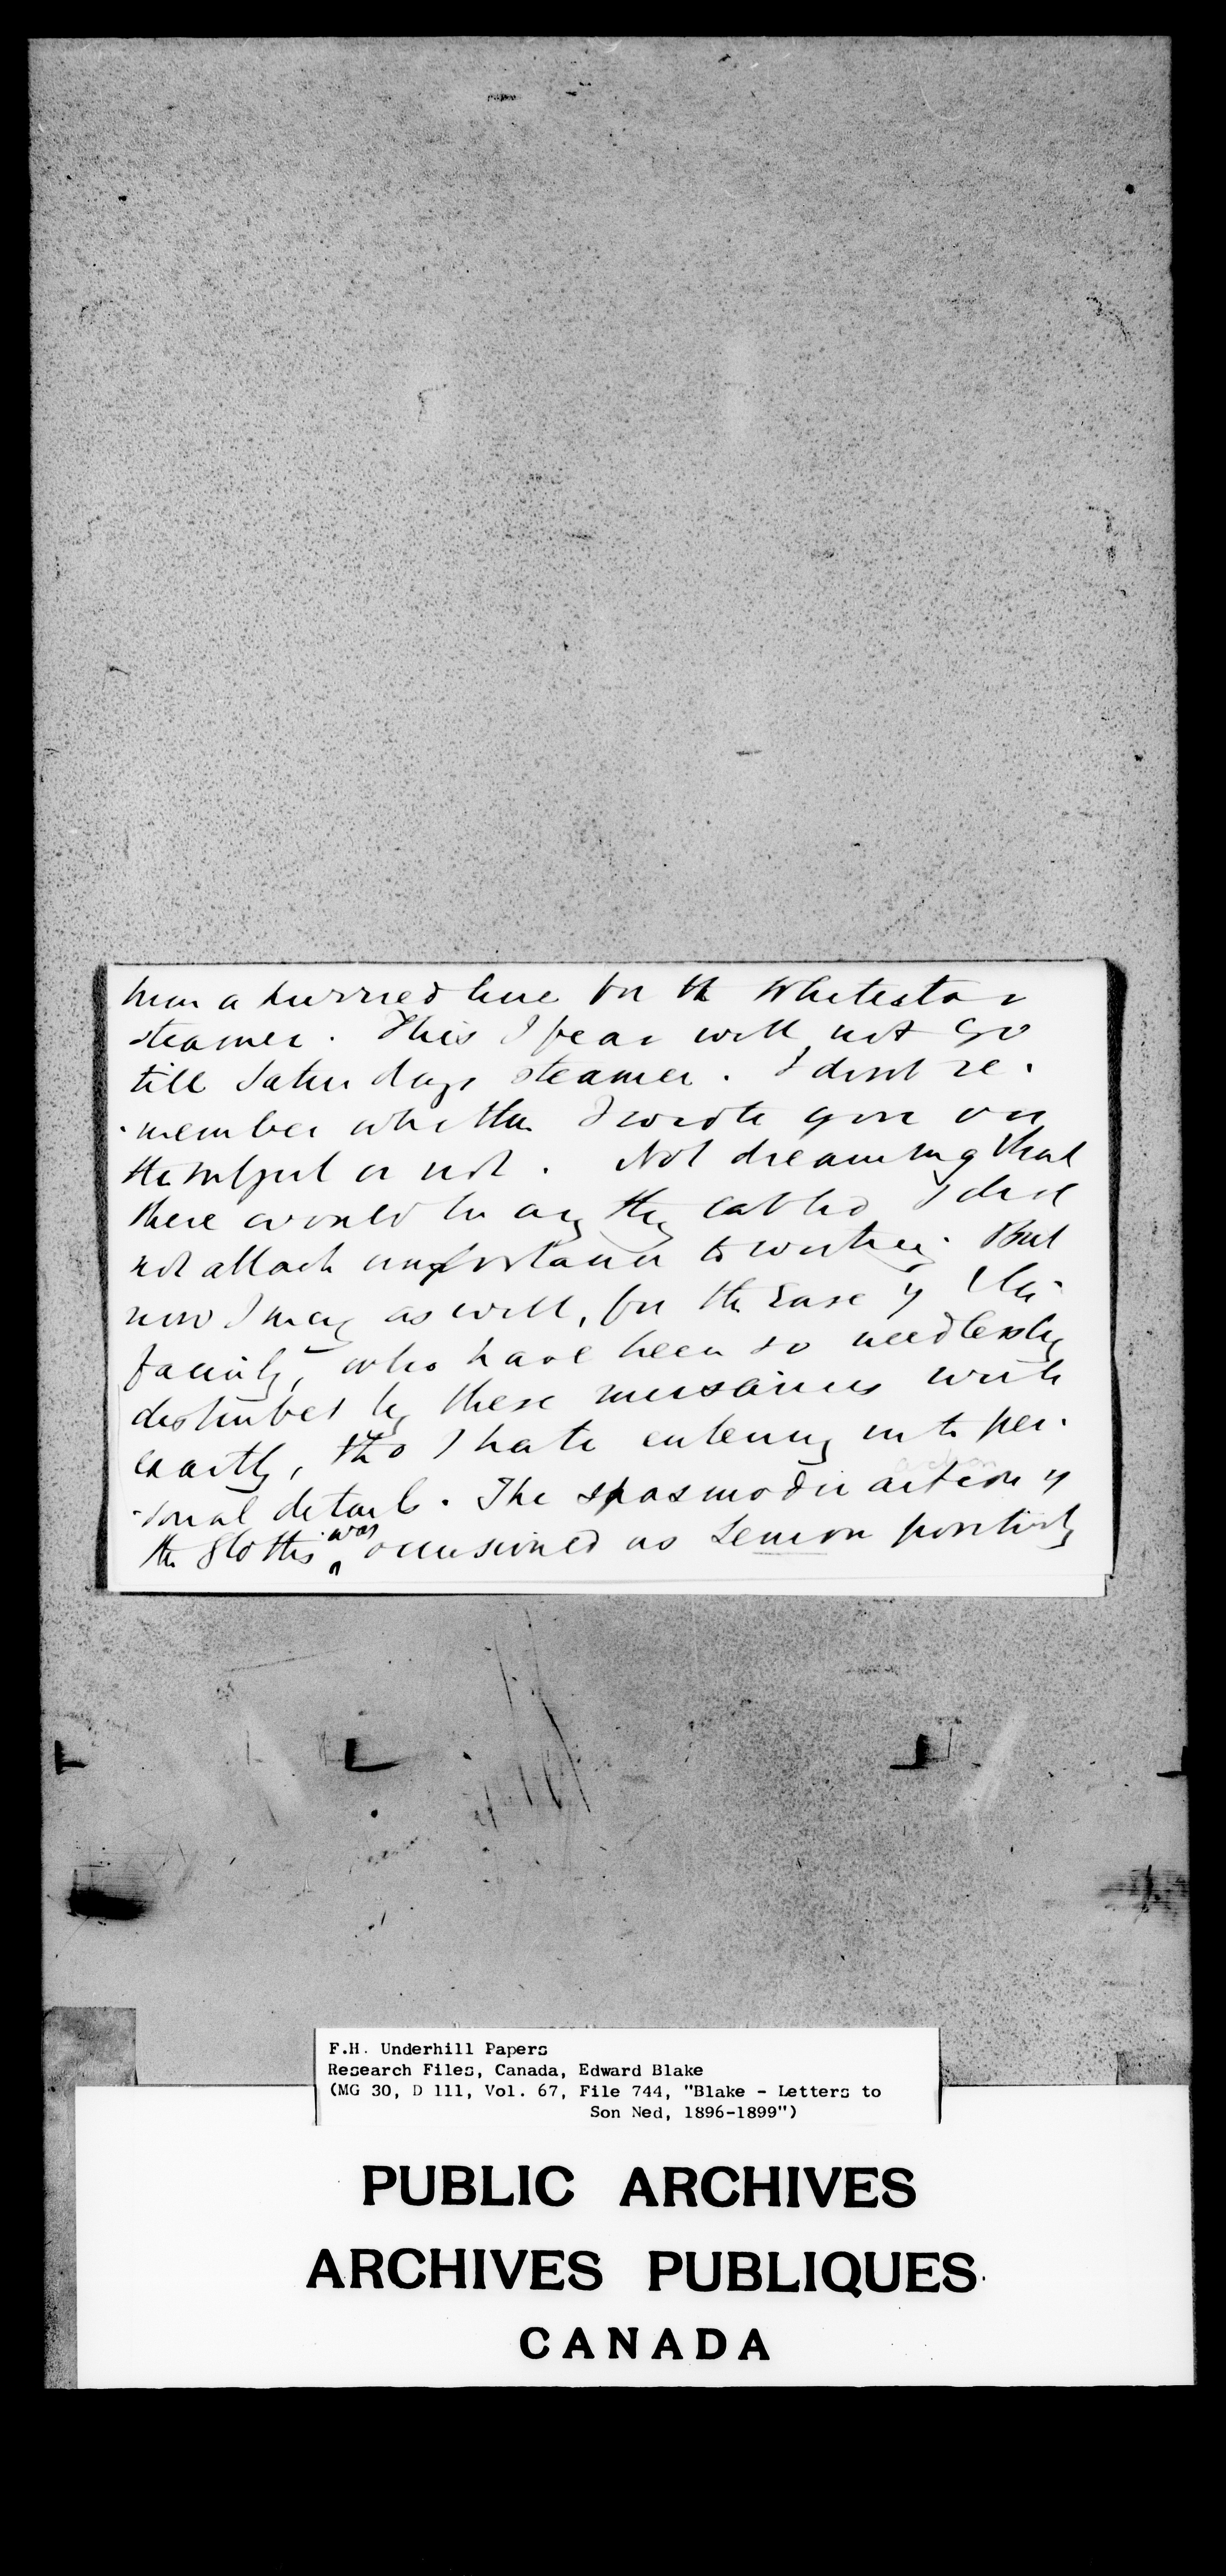 him a hurried line for the Whitestar
steamer. This I fear will not go
till Saturdays steamer. I dont re-
-member whether I wrote you on
the subject or not. Not dreaming that
there would be any thing cabled I did
not attach importance to writing. But
now I may as well, for the ease of the
family, who have been so needlessly
disturbed by these nuisances write
exactly, tho I hate entering into per-
-sonal details. The spasmodic action of
the glottis was occasioned as Semon positively
F.H. Underhill Papers
Research Files, Canada, Edward Blake
(MG 30, D 111, Vol. 67, File 744, "Blake - Letters to
Son Ned, 1896-1899")
PUBLIC ARCHIVES
ARCHIVES PUBLIQUES
CANADA